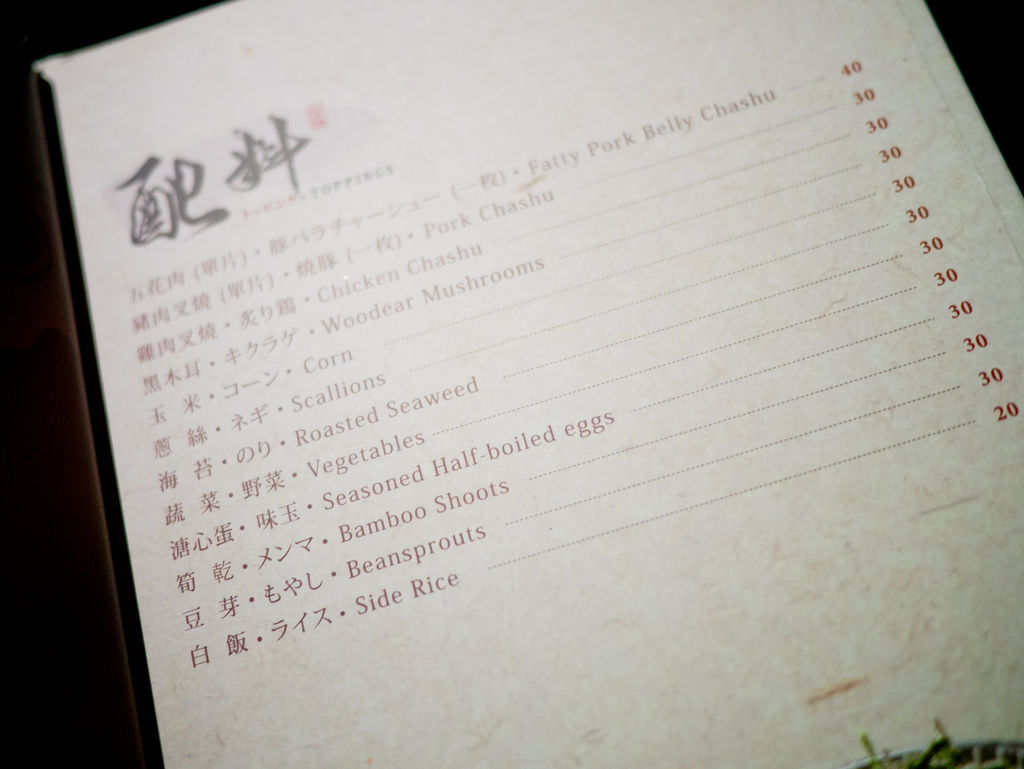 配料
トッピング・TOPPINGS
五花肉 (單片)・豚バラチャーシュー (一枚)・Fatty Pork Belly Chashu 40
豬肉叉燒 (單片)・焼豚 (一枚)・Pork Chashu 30
雞肉叉燒・炙り鶏・Chicken Chashu 30
黑木耳・キクラゲ・Woodear Mushrooms 30
玉 米・コーン・Corn 30
蔥 絲・ネギ・Scallions 30
海 苔・のり・Roasted Seaweed 30
蔬 菜・野菜・Vegetables 30
溏心蛋・味玉・Seasoned Half-boiled eggs 30
筍 乾・メンマ・Bamboo Shoots 30
豆 芽・もやし・Beansprouts 30
白 飯・ライス・Side Rice 20